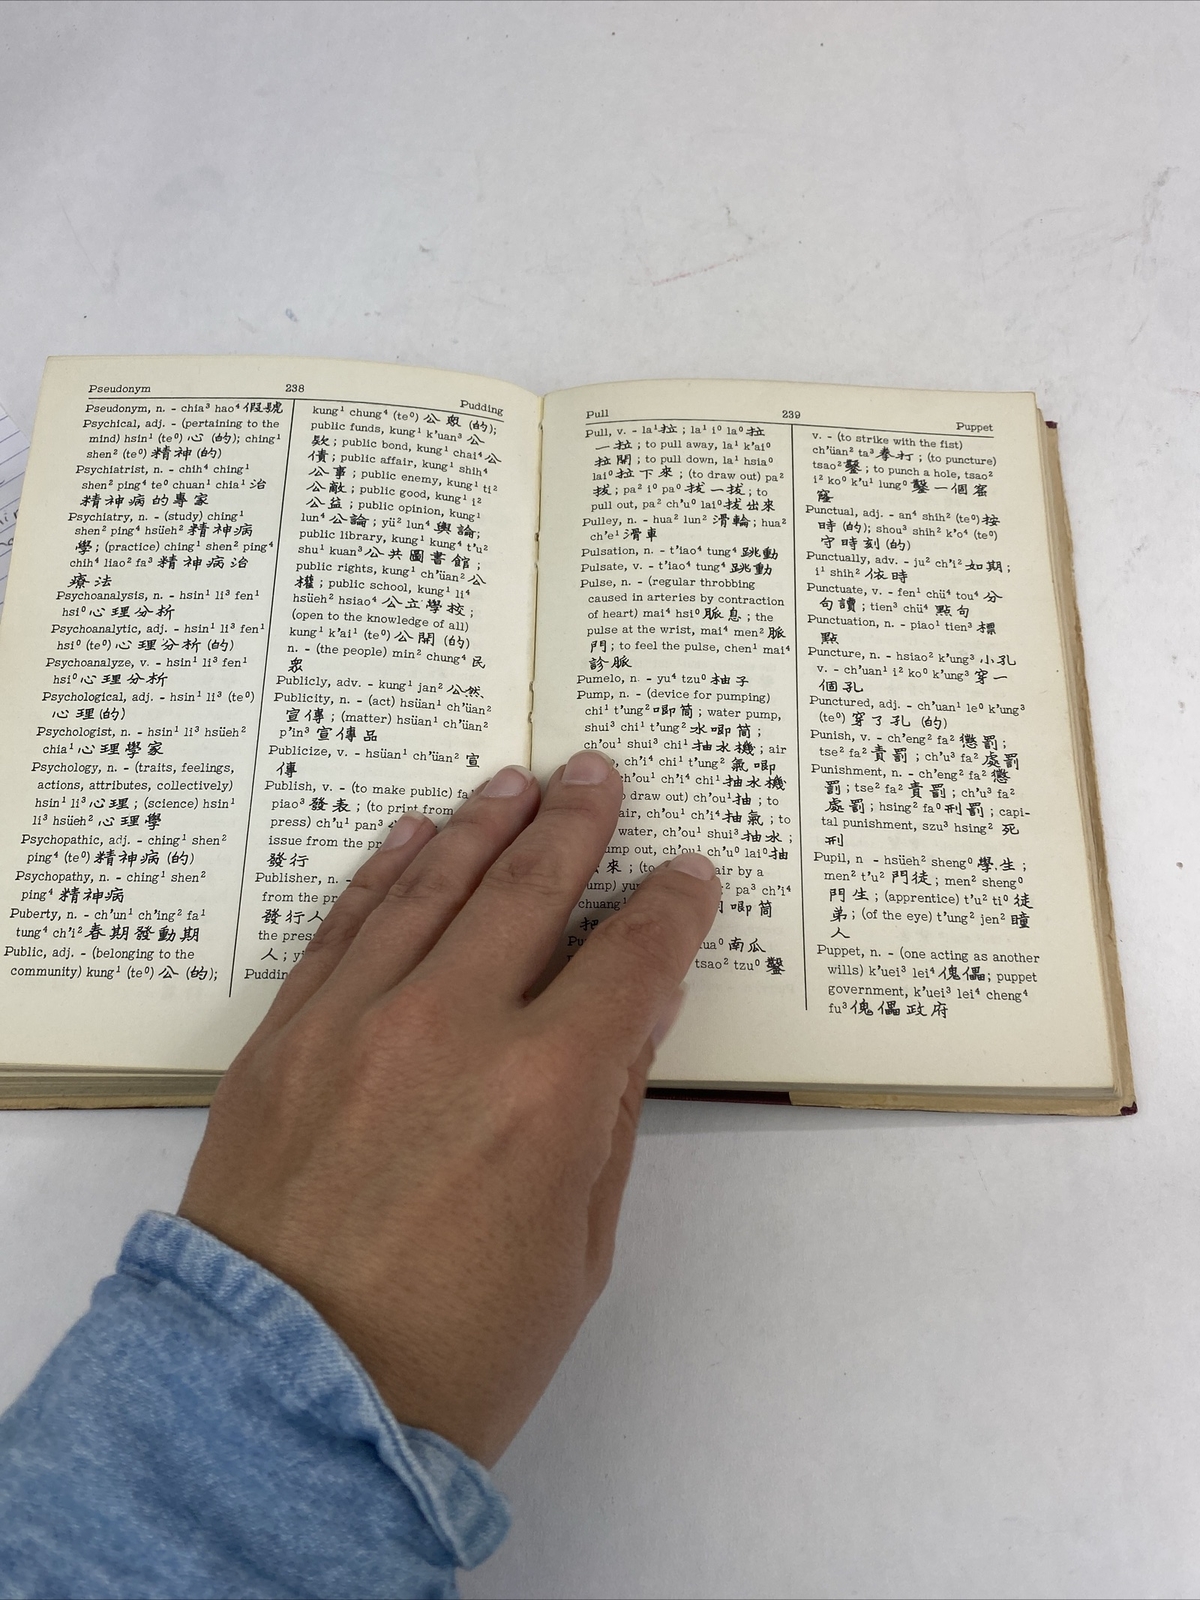 Pseudonym 238 Pudding
Pseudonym, n. - chia³ hao⁴ 假號
Psychical, adj. - (pertaining to the
mind) hsin¹ (te⁰) 心 (的); ching¹
shen² (te⁰) 精神 (的)
Psychiatrist, n. - chih⁴ ching¹
shen² ping⁴ te⁰ chuan¹ chia¹ 治
精神病的專家
Psychiatry, n. - (study) ching¹
shen² ping⁴ hsüeh² 精神病
學; (practice) ching¹ shen² ping⁴
chih⁴ liao² fa³ 精神病治
療法
Psychoanalysis, n. - hsin¹ li³ fen¹
hsi⁰ 心理分析
Psychoanalytic, adj. - hsin¹ li³ fen¹
hsi⁰ (te⁰) 心理分析 (的)
Psychoanalyze, v. - hsin¹ li³ fen¹
hsi⁰ 心理分析
Psychological, adj. - hsin¹ li³ (te⁰)
心理 (的)
Psychologist, n. - hsin¹ li³ hsüeh²
chia¹ 心理學家
Psychology, n. - (traits, feelings,
actions, attributes, collectively)
hsin¹ li³ 心理; (science) hsin¹
li³ hsüeh² 心理學
Psychopathic, adj. - ching¹ shen²
ping⁴ (te⁰) 精神病 (的)
Psychopathy, n. - ching¹ shen²
ping⁴ 精神病
Puberty, n. - ch'un¹ ch'ing² fa¹
tung⁴ ch'i² 春期發動期
Public, adj. - (belonging to the
community) kung¹ (te⁰) 公 (的);
kung¹ chung⁴ (te⁰) 公眾 (的);
public funds, kung¹ k'uan³ 公
欵; public bond, kung¹ chai⁴ 公
債; public affair, kung¹ shih⁴
公事; public enemy, kung¹ ti²
公敵; public good, kung¹ i²
公益; public opinion, kung¹
lun⁴ 公論; yü² lun⁴ 輿論;
public library, kung¹ kung⁴ t'u²
shu¹ kuan³ 公共圖書館;
public rights, kung¹ ch'üan² 公
權; public school, kung¹ li⁴
hsüeh² hsiao⁴ 公立學校;
(open to the knowledge of all)
kung¹ k'ai¹ (te⁰) 公開 (的)
n. - (the people) min² chung⁴ 民
眾
Publicly, adv. - kung¹ jan² 公然
Publicity, n. - (act) hsüan¹ ch'üan²
宣傳; (matter) hsüan¹ ch'üan²
p'in³ 宣傳品
Publicize, v. - hsüan¹ ch'üan² 宣
傳
Publish, v. - (to make public) fa
piao³ 發表; (to print from
press) ch'u¹ pan³
issue from the
發行
Publisher, n. -
from the
發行人
the press
人;
Pull 239 Puppet
Pull, v. - la¹ 拉; la¹ i⁰ la⁰ 拉
一拉; to pull away, la¹ k'ai⁰
拉開; to pull down, la¹ hsia⁰
lai⁰ 拉下來; (to draw out) pa²
拔; pa² i⁰ pa⁰ 拔一拔; to
pull out, pa² ch'u⁰ lai⁰ 拔出來
Pulley, n. - hua² lun² 滑輪; hua²
ch'e¹ 滑車
Pulsation, n. - t'iao⁴ tung⁴ 跳動
Pulsate, v. - t'iao⁴ tung⁴ 跳動
Pulse, n. - (regular throbbing
caused in arteries by contraction
of heart) mai⁴ hsi⁰ 脈息; the
pulse at the wrist, mai⁴ men² 脈
門; to feel the pulse, chen¹ mai⁴
診脈
Pumelo, n. - yu⁴ tzu⁰ 柚子
Pump, n. - (device for pumping)
chi¹ t'ung² 喞筒; water pump,
shui³ chi¹ t'ung² 水喞筒;
ch'ou¹ shui³ chi¹ 抽水機; air
ch'i⁴ chi¹ t'ung² 氣喞
ch'ou¹ ch'i⁴ chi¹ 抽水機
draw out) ch'ou¹ 抽; to
air, ch'ou¹ ch'i⁴ 抽氣; to
water, ch'ou¹ shui³ 抽水;
out, ch'ou¹ ch'u⁰ lai⁰ 抽
來; (to air by a
pa³ ch'i⁴
chuang¹ 喞筒
把
南瓜
tsao² tzu⁰ 鑿
v. - (to strike with the fist)
ch'üan² ta³ 拳打; (to puncture)
tsao² 鑿; to punch a hole, tsao²
i² ko⁰ k'u¹ lung⁰ 鑿一個窟
窿
Punctual, adj. - an⁴ shih² (te⁰) 按
時 (的); shou³ shih² k'o⁴ (te⁰)
守時刻 (的)
Punctually, adv. - ju² ch'i² 如期;
i¹ shih² 依時
Punctuate, v. - fen¹ chü⁴ tou⁴ 分
句讀; tien³ chü⁴ 點句
Punctuation, n. - piao¹ tien³ 標
點
Puncture, n. - hsiao² k'ung³ 小孔
v. - ch'uan¹ i² ko⁰ k'ung³ 穿一
個孔
Punctured, adj. - ch'uan¹ le⁰ k'ung³
(te⁰) 穿了孔 (的)
Punish, v. - ch'eng² fa² 懲罰;
tse² fa² 責罰; ch'u³ fa² 處罰
Punishment, n. - ch'eng² fa² 懲
罰; tse² fa² 責罰; ch'u³ fa²
處罰; hsing² fa⁰ 刑罰; capi-
tal punishment, szu³ hsing² 死
刑
Pupil, n - hsüeh² sheng⁰ 學生;
men² t'u² 門徒; men² sheng⁰
門生; (apprentice) t'u² ti⁰ 徒
弟; (of the eye) t'ung² jen² 瞳
人
Puppet, n. - (one acting as another
wills) k'uei³ lei⁴ 傀儡; puppet
government, k'uei³ lei⁴ cheng⁴
fu³ 傀儡政府